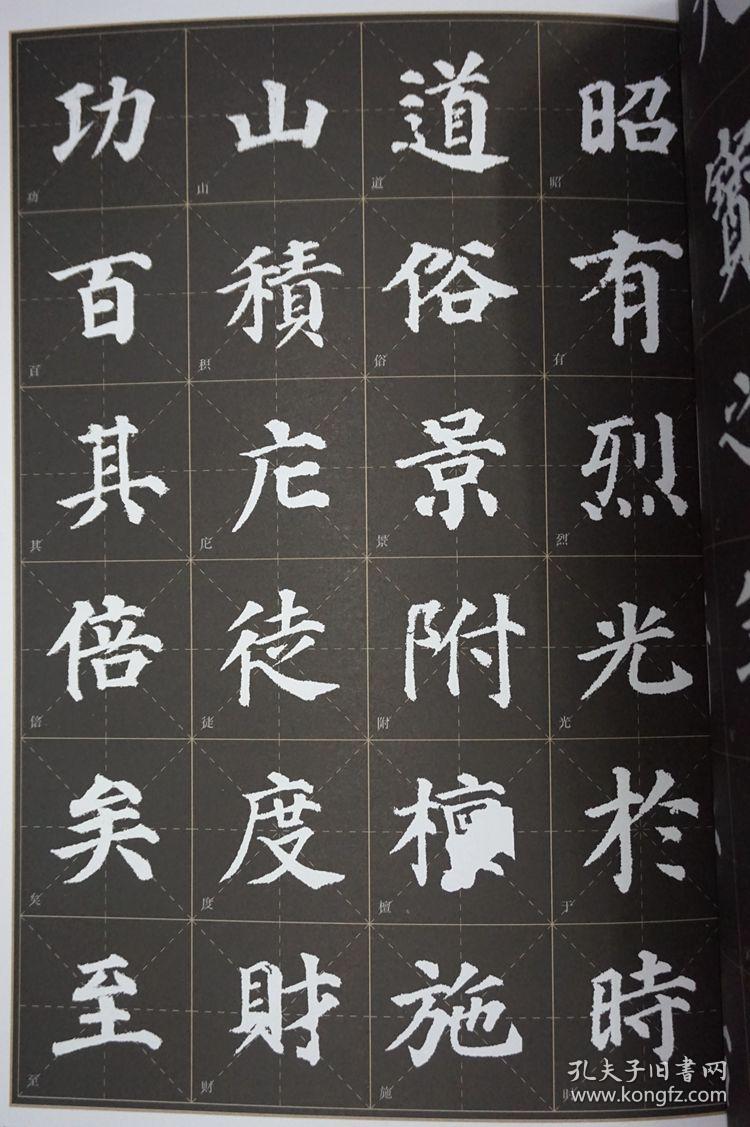 寶
昭有烈光於時
昭有烈光于
道俗景附檀施
道俗景附檀施
山積庀徒度財
山积庀徒度财
功百其倍矣至
功百其倍矣至
孔夫子旧书网
www.kongfz.com